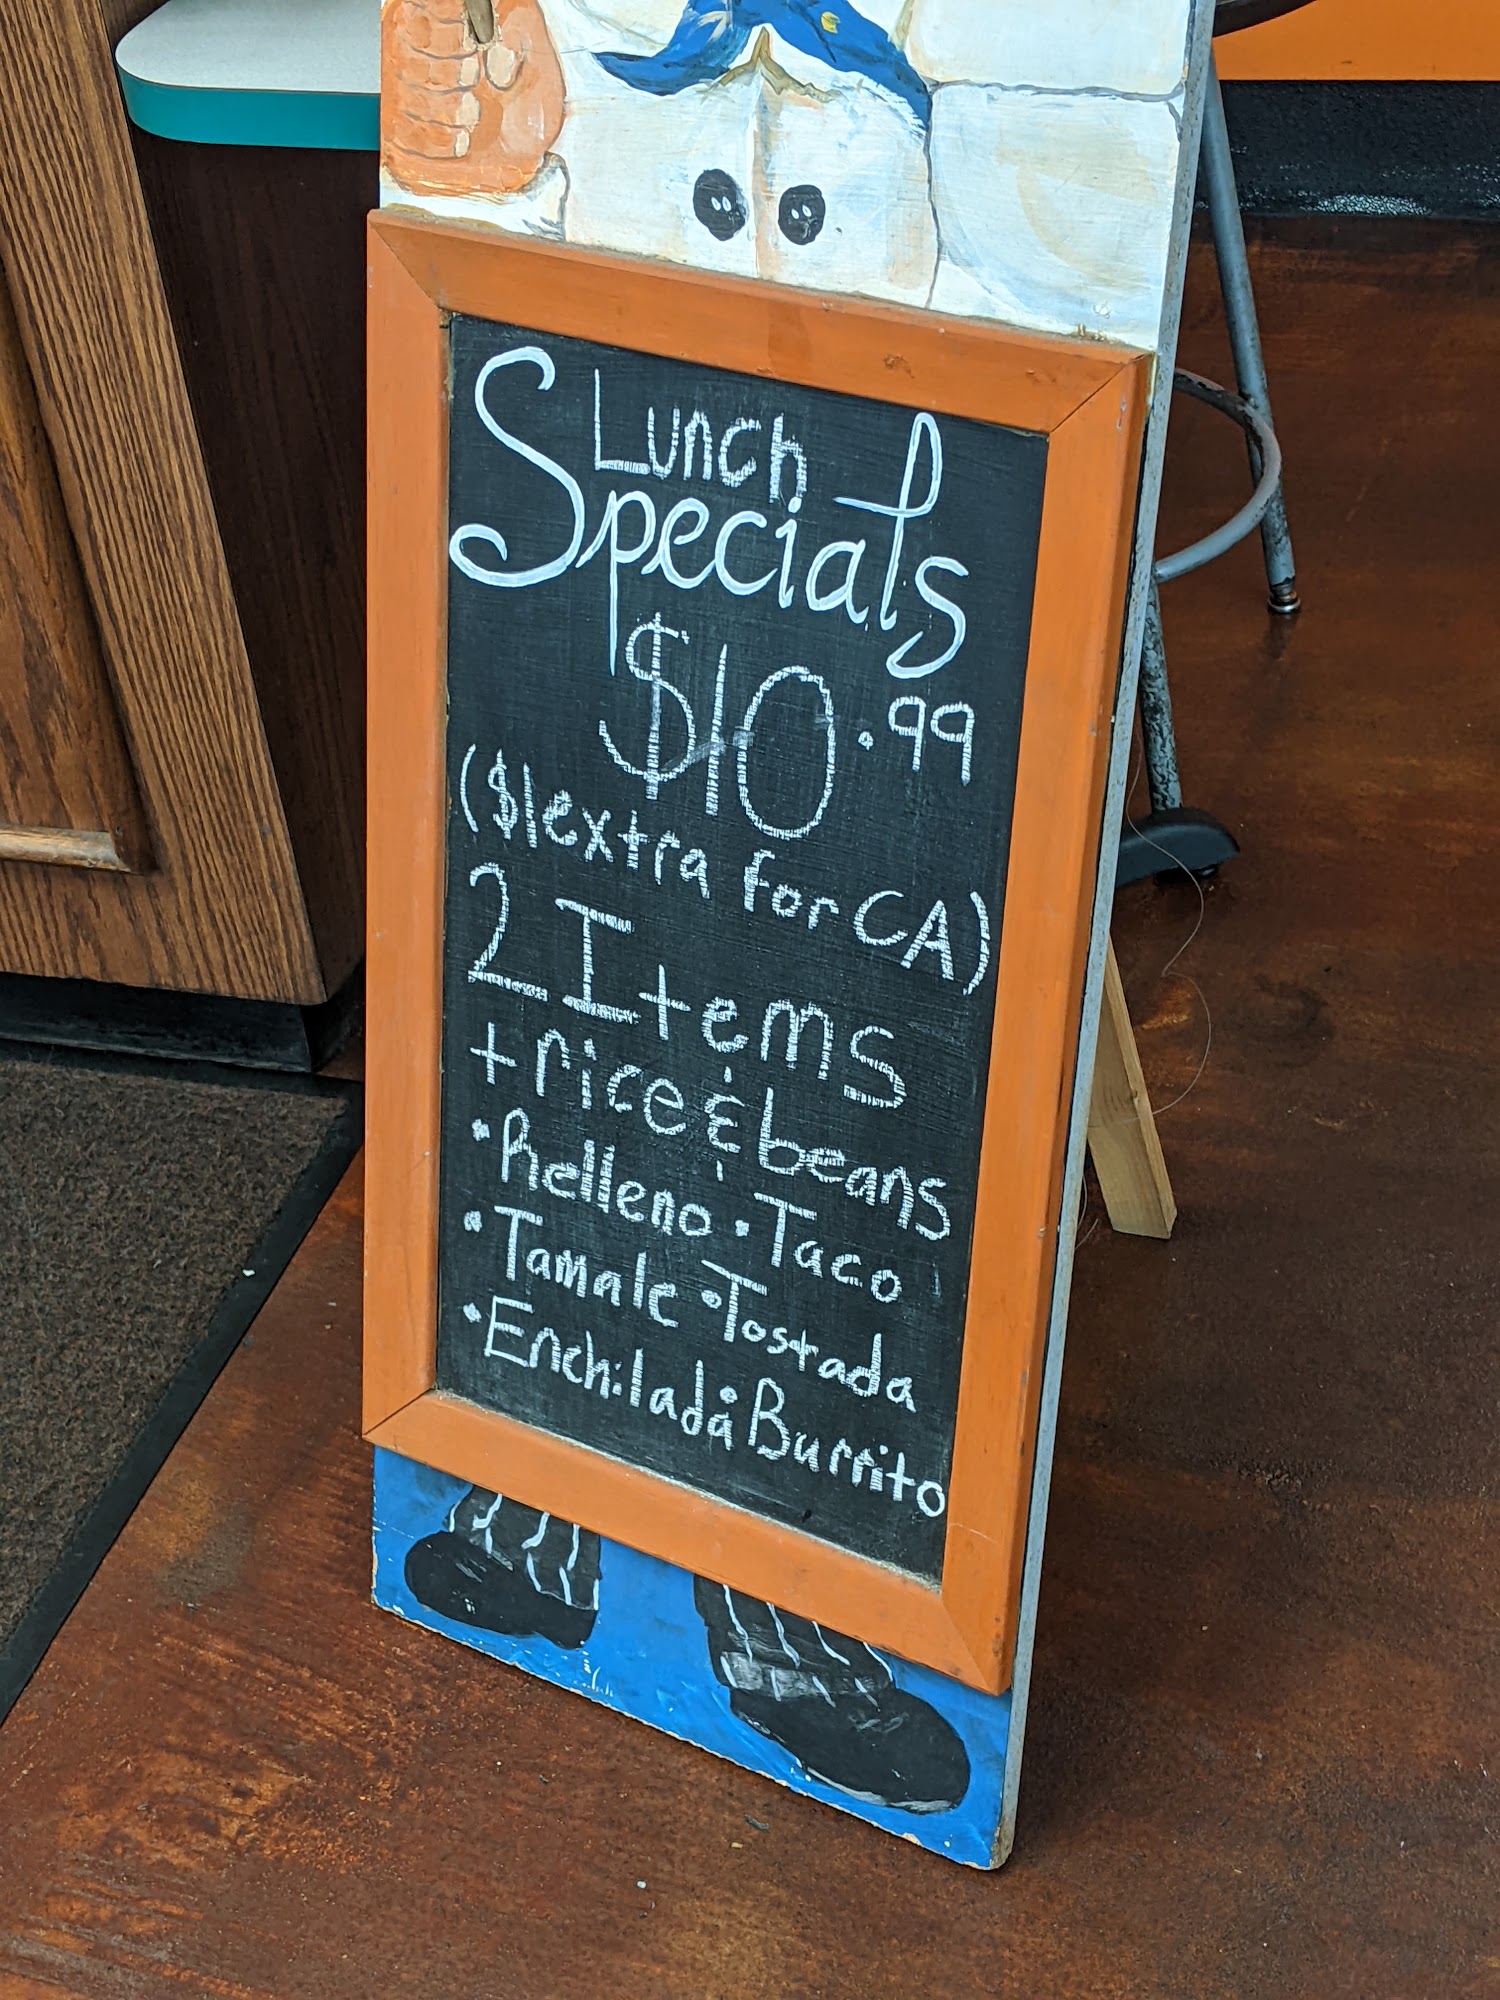 Lunch
Specials
$10.99
($1 extra for CA)
2 Items
+ rice & beans
• Relleno • Taco
• Tamale • Tostada
• Enchilada • Burrito